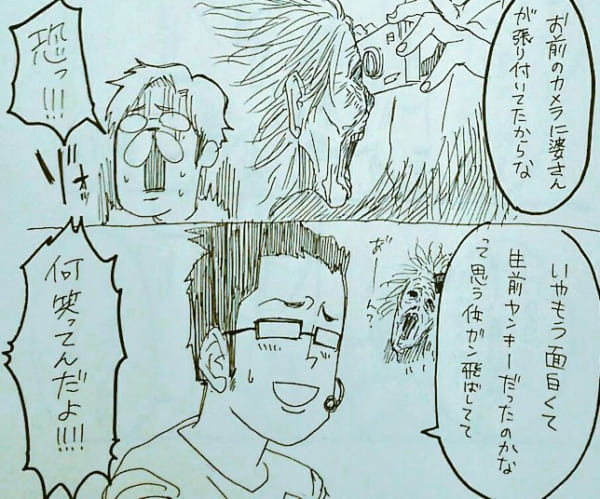 お前のカメラに婆さん
が張り付いてたからな
恐っ!!!
ゾオッ
いやもう面白くて
生前ヤンキーだったのかな
って思う位ガン飛ばしてて
あーん?
何笑ってんだよ!!!!